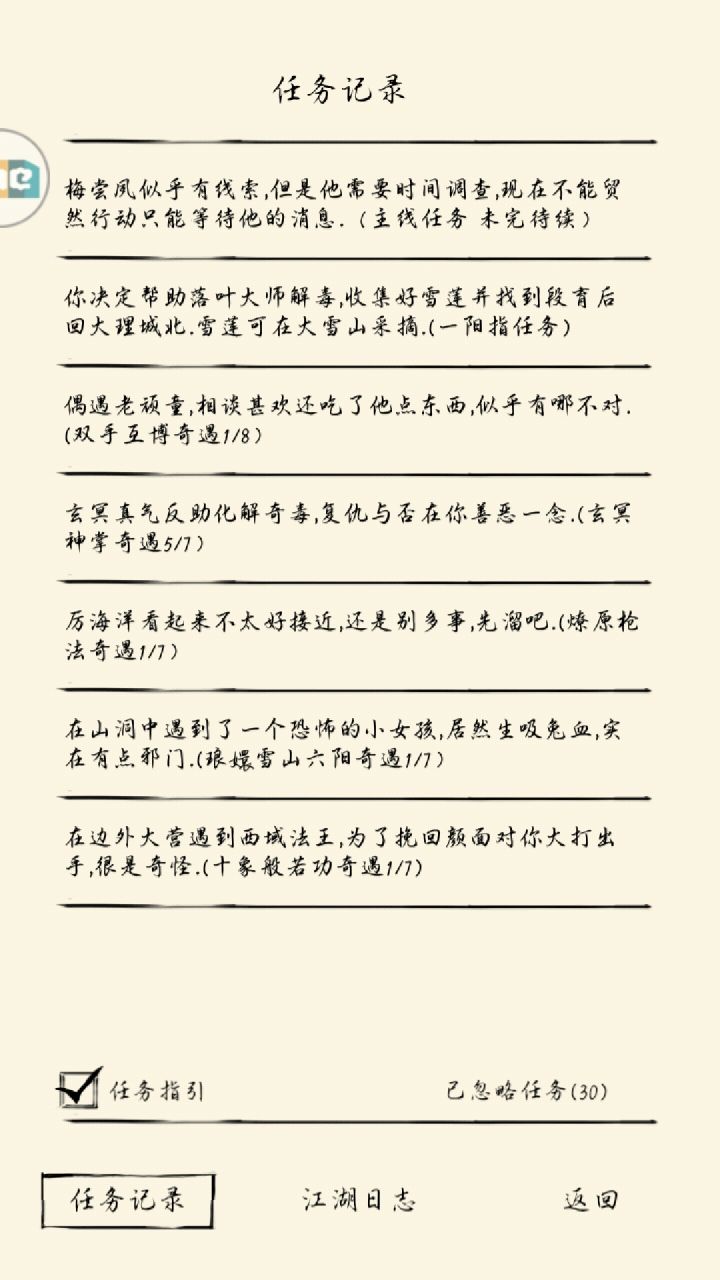 任务记录
梅尝夙似乎有线索,但是他需要时间调查,现在不能贸
然行动只能等待他的消息.（主线任务 未完待续）
你决定帮助落叶大师解毒,收集好雪莲并找到段育后
回大理城北.雪莲可在大雪山采摘.(一阳指任务)
偶遇老顽童,相谈甚欢还吃了他点东西,似乎有哪不对.
(双手互博奇遇1/8)
玄冥真气反助化解奇毒,复仇与否在你善恶一念.(玄冥
神掌奇遇5/7)
厉海洋看起来不太好接近,还是别多事,先溜吧.(燎原枪
法奇遇1/7)
在山洞中遇到了一个恐怖的小女孩,居然生吸兔血,实
在有点邪门.(琅嬛雪山六阳奇遇1/7)
在边外大营遇到西域法王,为了挽回颜面对你大打出
手,很是奇怪.(十象般若功奇遇1/7)
任务指引 已忽略任务(30)
任务记录 江湖日志 返回